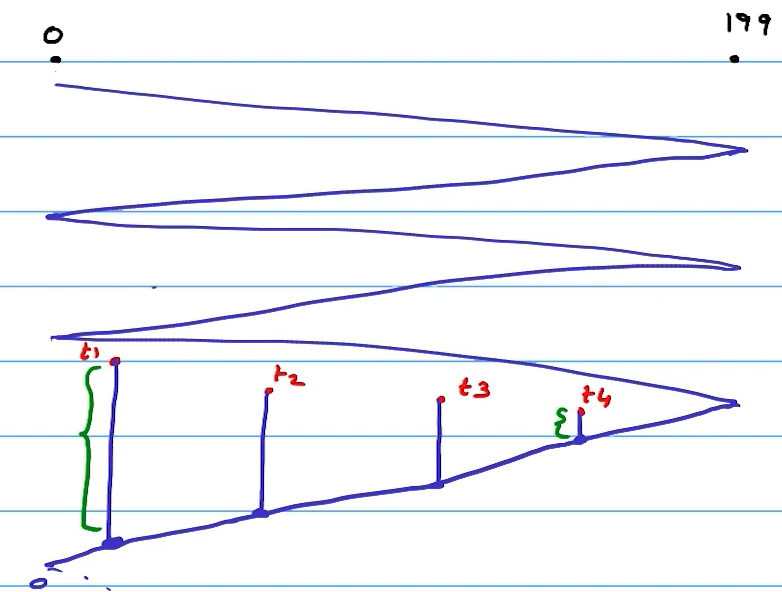 0 199
t1
t2
t3 t4
0